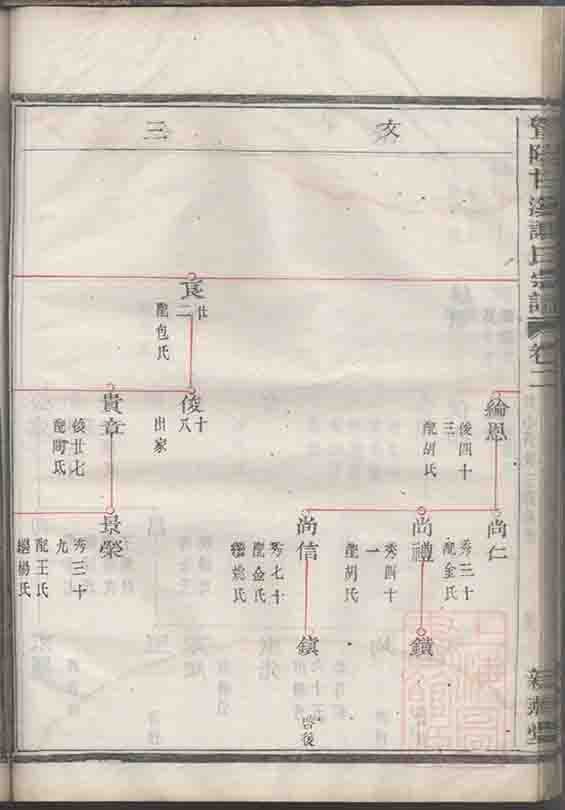 暨陽甘溪譚氏宗譜
卷二
文
三
綸恩
俊四十
三
配胡氏
尚仁
秀三十
配金氏
尚禮
秀四十
一
配胡氏
鐵
尚信
秀七十
配金氏
繼姚氏
鎮
俊
十
八
出家
廿
二
配包氏
貴章
俊廿七
配陶氏
景榮
秀三十
九
配王氏
繼楊氏